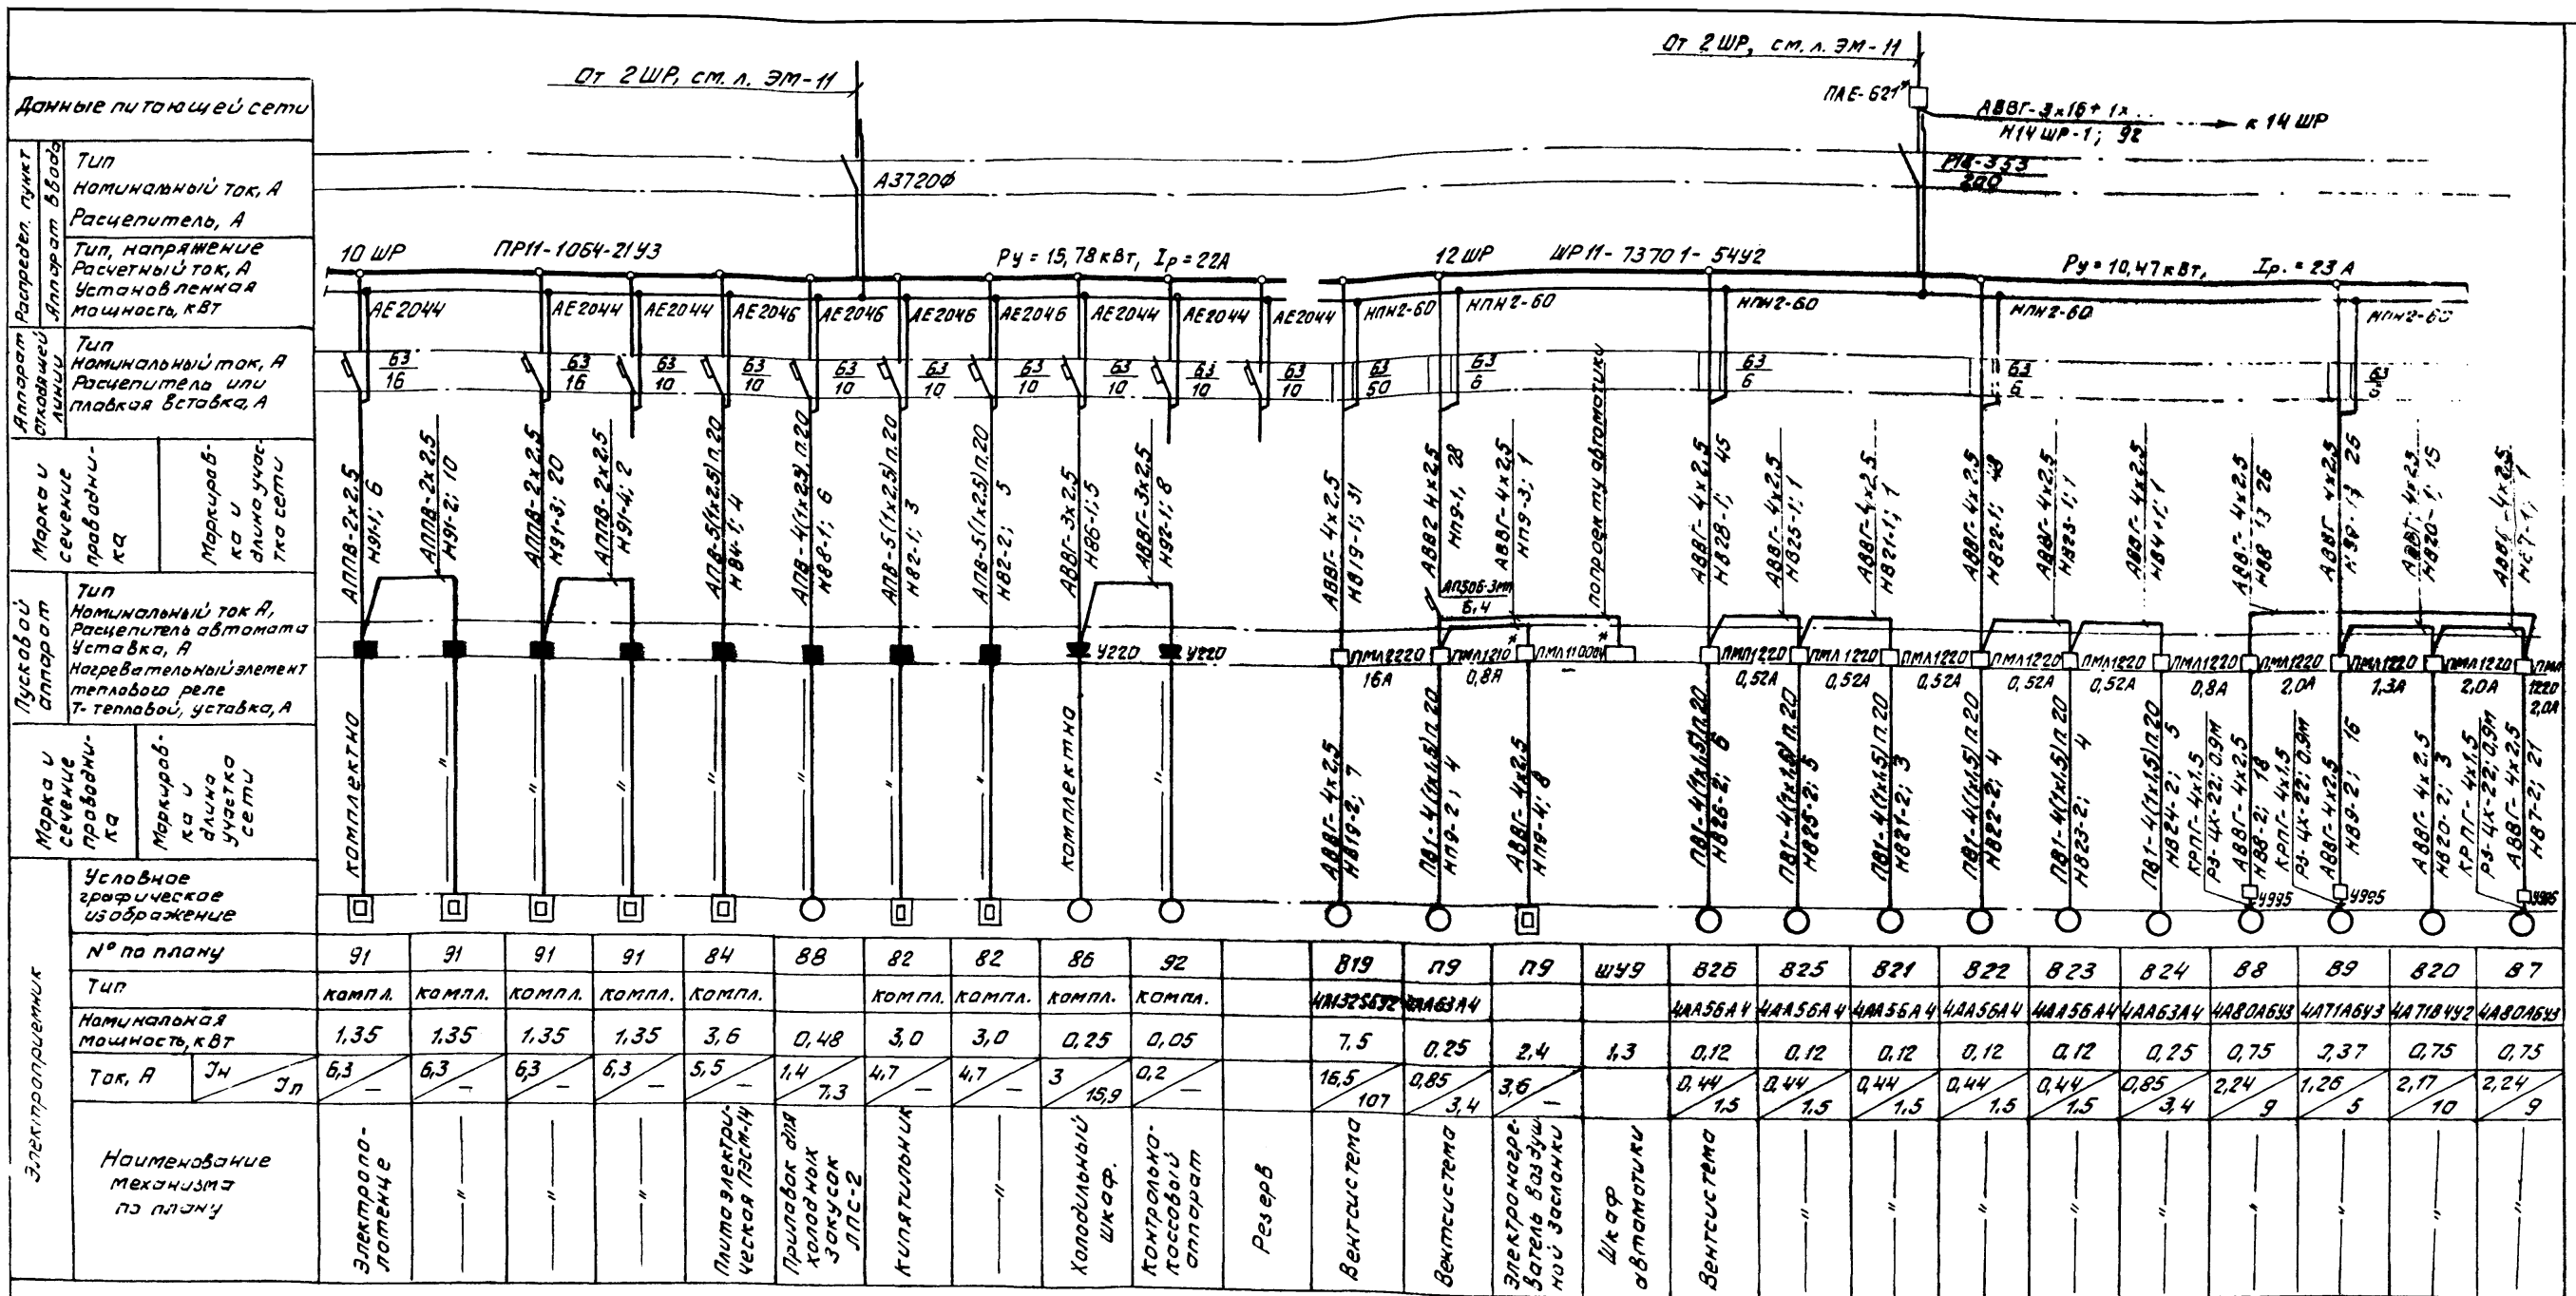 От 2 ШР, см. л. ЭМ-11
От 2 ШР, см. л. ЭМ-11
ПАЕ-621*
АВВГ-3х16+1х...
Н14ШР-1; 92
к 14 ШР
Данные питающей сети
Распредел. пункт
Аппарат ввода
Тип
Номинальный ток, А
Расцепитель, А
А3720Ф
200
Тип, напряжение
Расчетный ток, А
Установленная
мощность, кВт
10 ШР
ПР11-1064-21У3
Ру = 15,78 кВт, Iр = 22А
12 ШР
ШР11-73701-54У2
Ру = 10,47 кВт, Iр. = 23 А
АЕ2044
АЕ2044
АЕ2044
АЕ2046
АЕ2046
АЕ2046
АЕ2046
АЕ2044
АЕ2044
АЕ2044
НПН2-60
НПН2-60
НПН2-60
НПН2-60
НПН2-60
Аппарат отходящей линии
Тип
Номинальный ток, А
Расцепитель или
плавкая вставка, А
63 63 63 63 63 63 63 63 63 63 63 63 63 63 63
16 16 10 10 10 10 10 10 10 10 50 6 6 6
Марка и
сечение
проводни-
ка
Маркиров-
ка и
длина учас-
тка сети
АППВ-2х2,5
Н91-1; 6
АППВ-2х2,5
Н91-2; 10
АППВ-2х2,5
Н91-3; 20
АППВ-2х2,5
Н91-4; 2
АПВ-5(1х2,5)п.20
Н84-1; 4
АПВ-4(1х2,5)п.20
Н88-1; 6
АПВ-5(1х2,5)п.20
Н82-1; 3
АПВ-5(1х2,5)п.20
Н82-2; 5
АВВГ-3х2,5
Н86-1; 5
АВВГ-3х2,5
Н92-1; 8
АВВГ-4х2,5
НВ19-1; 31
АВВГ 4х2,5
НП9-1, 28
АВВГ-4х2,5
НП9-3; 1
по проекту автоматики
АВВГ-4х2,5
НВ26-1; 45
АВВГ-4х2,5
НВ25-1; 1
АВВГ-4х2,5
НВ21-1; 1
АВВГ-4х2,5
НВ22-1;
АВВГ-4х2,5
НВ23-1; 1
АВВГ-4х2,5
АВВГ-4х2,5
НВ8 26
АВВГ 4х2,5
26
АВВГ-4х2,5
НВ20-1; 15
АВВГ-4х2,5
1
Пусковой
аппарат
Тип
Номинальный ток А,
Расцепитель автомата
Уставка, А
Нагревательный элемент
теплового реле
Т-тепловой, уставка, А
У220
У220
АП50Б-3МТ
6,4
ПМЛ2220
16А
ПМЛ1210
0,8А
ПМЛ11000*
—
*
ПМЛ1220
0,52А
ПМЛ1220
0,52А
ПМЛ1220
0,52А
ПМЛ1220
0,52А
ПМЛ1220
0,52А
ПМЛ1220
0,8А
ПМЛ1220
2,0А
ПМЛ1220
1,3А
ПМЛ1220
2,0А
ПМЛ
1220
2,0А
Марка и
сечение
проводни-
ка
Маркиров-
ка и
длина
участка
сети
комплектно
—"—
—"—
—"—
—"—
—"—
—"—
—"—
комплектно
—"—
АВВГ-4х2,5
НВ19-2; 7
ПВ1-4(1х1,5)п.20
НП9-2; 4
АВВГ-4х2,5
НП9-4; 8
ПВ1-4(1х1,5)п.20
НВ26-2; 6
ПВ1-4(1х1,5)п.20
НВ25-2; 5
ПВ1-4(1х1,5)п.20
НВ21-2; 3
ПВ1-4(1х1,5)п.20
НВ22-2; 4
ПВ1-4(1х1,5)п.20
НВ23-2; 4
ПВ1-4(1х1,5)п.20
НВ24-2; 5
КРПГ-4х1,5
РЗ-ЦХ-22; 0,9м
АВВГ-4х2,5
НВ8-2; 18
КРПГ-4х1,5
РЗ-ЦХ-22; 0,9м
АВВГ-4х2,5
НВ9-2; 16
АВВГ-4х2,5
НВ20-2; 3
КРПГ-4х1,5
РЗ-ЦХ-22; 0,9м
АВВГ-4х2,5
НВ7-2; 21
Электроприемник
Условное
графическое
изображение
У995
У995
У995
N° по плану
91 91 91 91 84 88 82 82 86 92 В19 П9 П9 ШУ9 В26 В25 В21 В22 В23 В24 В8 В9 В20 В7
Тип
компл. компл. компл. компл. компл. компл. компл. компл. компл. 4АА63А4 4АА56А4 4АА56А4 4АА56А4 4АА56А4 4АА56А4 4АА63А4 4А80А6У3 4А71А6У3 4А71В4У2 4А80А6У3
Номинальная
мощность, кВт
1,35 1,35 1,35 1,35 3,6 0,48 3,0 3,0 0,25 0,05 7,5 0,25 2,4 1,3 0,12 0,12 0,12 0,12 0,12 0,25 0,75 0,37 0,75 0,75
Ток, А
Iн
6,3 6,3 6,3 6,3 5,5 1,4 4,7 4,7 3 0,2 16,5 0,85 3,6 0,44 0,44 0,44 0,44 0,44 0,85 2,24 1,26 2,17 2,24
Iп
— — — — — 7,3 — — 15,9 — 107 3,4 — 1,5 1,5 1,5 1,5 1,5 3,4 9 5 10 9
Наименование
механизма
по плану
Электропо-
лотенце
—"—
—"—
—"—
Плита электри-
ческая ПЭСМ-14
Прилавок для
холодных
закусок
ЛПС-2
Кипятильник
—"—
Холодильный
шкаф.
Контрольно-
кассовый
аппарат
Резерв
Вентсистема
Вентсистема
Электронагре-
ватель воздуш
ной заслонки
Шкаф
автоматики
Вентсистема
—"—
—"—
—"—
—"—
—"—
—"—
—"—
—"—
—"—